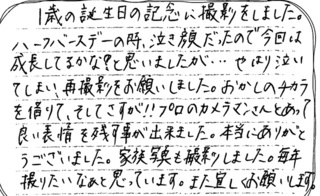 1歳の誕生日の記念に撮影をしました。
ハーフバースデーの時、泣き顔だったので今回は
成長してるかな？と思いましたが…やはり泣い
てしまい、再撮影をお願いしました。おかしのチカラ
を借りて、そしてさすが!!プロのカメラマンさんとあって
良い表情を残す事が出来ました。本当にありがと
うございました。家族写真も撮影しました。毎年
撮りたいなぁと思っています。また宜しくお願いします